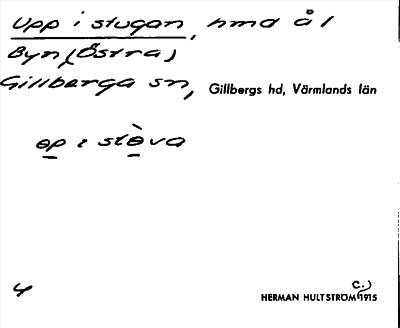 Upp i stugan, hmd å 1
Byn (Östra)
Gillberga sn, Gillbergs hd, Värmlands län
əp i stə̀va
4
C.)
HERMAN HULTSTRÖM 1915